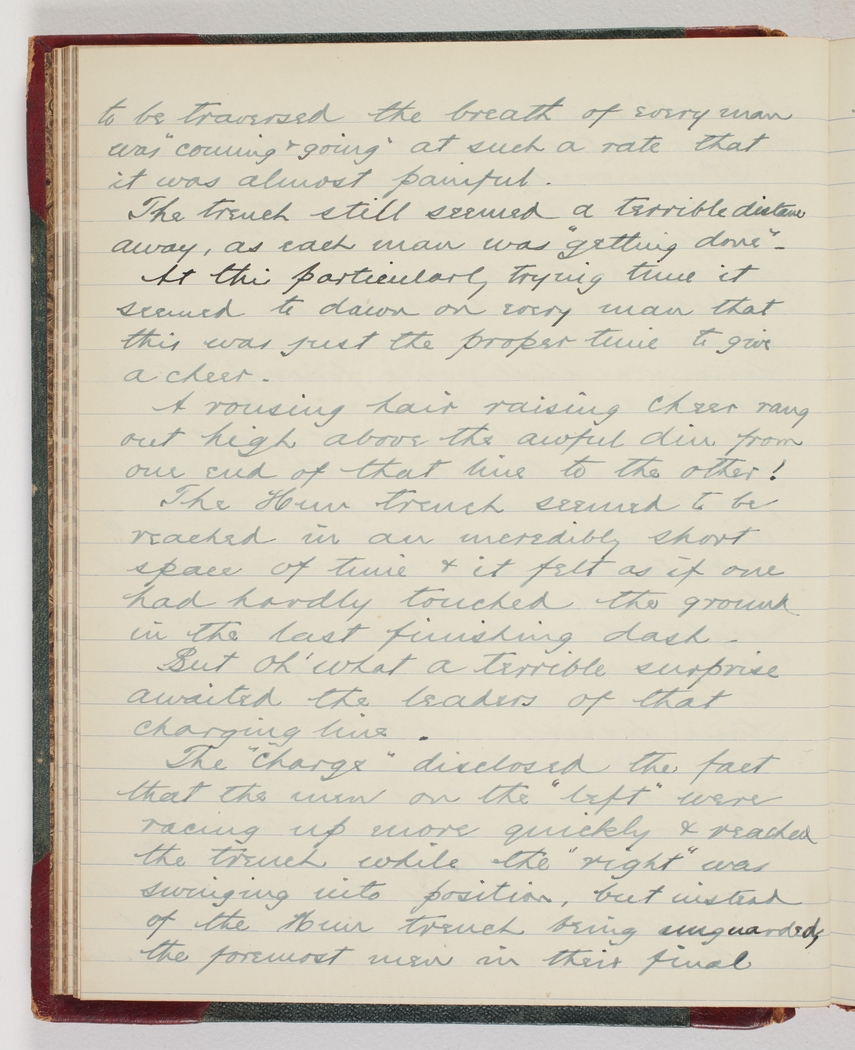 to be traversed the breath of every man
was "coming & going" at such a rate that
it was almost painful.
The trench still seemed a terrible distance
away, as each man was "getting done" -
At this particularly trying time it
seemed to dawn on every man that
this was just the proper time to give
a cheer.
A rousing hair raising cheer rang
out high above the awful din from
one end of that line to the other!
The Hun trench seemed to be
reached in an incredibly short
space of time & it felt as if one
had hardly touched the ground
in the last finishing dash -
But Oh' what a terrible surprise
awaited the leaders of that
charging line.
The "Charge" disclosed the fact
that the men on the "left" were
racing up more quickly & reached
the trench while the "right" was
swinging into position, but instead
of the Hun trench being unguarded,
the foremost men in their final